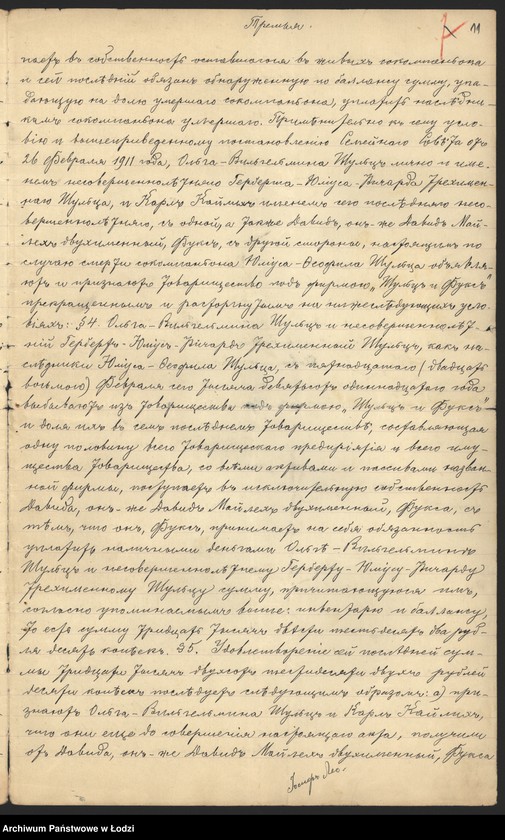 Третья.
11
паетъ въ собственность оставшагося въ живыхъ сокомпаньона
и сей послѣдній обязанъ обнаруженную по балансу сумму, упа-
дающую на долю умершаго сокомпаньона, уплатить наслѣдни-
камъ сокомпаньона умершаго. Примѣнительно къ сему усло-
вію и вышеприведенному постановленію Семейнаго Совѣта отъ
26 Февраля 1911 года, Ольга-Вильгельмина Шульцъ лично и име-
немъ несовершеннолѣтняго Герберта-Юліуса-Ричарда трехимен-
наго Шульца, и Карлъ Каймахъ именемъ сего послѣдняго несо-
вершеннолѣтняго, съ одной, а также Давидъ, онъ-же Давидъ Май-
лехъ двухименный, Фуксъ, съ другой стороны, настоящимъ по
случаю смерти сокомпаньона Юліуса-Ѳеофила Шульца объявля-
ютъ и признаютъ Товарищество подъ фирмою „Шульцъ и Фуксъ"
прекращеннымъ и расторгнутымъ на нижеслѣдующихъ усло-
віяхъ: §4. Ольга-Вильгельмина Шульцъ и несовершеннолѣт-
ній Гербертъ-Юліусъ-Ричардъ трехименный Шульцъ, какъ на-
слѣдники Юліуса-Ѳеофила Шульца, съ пятнадцатаго (двадцать
восьмого) Февраля сего тысяча девятьсотъ одиннадцатаго года
выбываютъ изъ Товарищества подъ фирмою „Шульцъ и Фуксъ"
и доля ихъ въ семъ послѣднемъ Товариществѣ, составляющая
одну половину всего Товарищескаго предпріятія и всего иму-
щества Товарищества, со всѣми активами и пассивами назван-
ной фирмы, поступаетъ въ исключительную собственность
Давида, онъ-же Давидъ Майлехъ двухименный, Фукса, съ
тѣмъ, что онъ, Фуксъ, принимаетъ на себя обязанность
уплатить наличными деньгами Ольгѣ-Вильгельминѣ
Шульцъ и несовершеннолѣтнему Герберту-Юліусу-Ричарду
трехименному Шульцу сумму, причитающуюся имъ,
согласно упоминаемымъ выше: инвентарю и балансу,
то есть сумму тридцать тысячъ двѣсти шестьдесятъ два руб-
ля десять копѣекъ. §5. Удовлетвореніе сей послѣдней сум-
мы тридцати тысячъ двухсотъ шестидесяти двухъ рублей
десяти копѣекъ послѣдуетъ слѣдующимъ образомъ: а) при-
знаютъ Ольга-Вильгельмина Шульцъ и Карлъ Каймахъ,
что они еще до совершенія настоящаго акта, получили
отъ Давида, онъ-же Давидъ Майлехъ двухименный, Фукса
Archiwum Państwowe w Łodzi